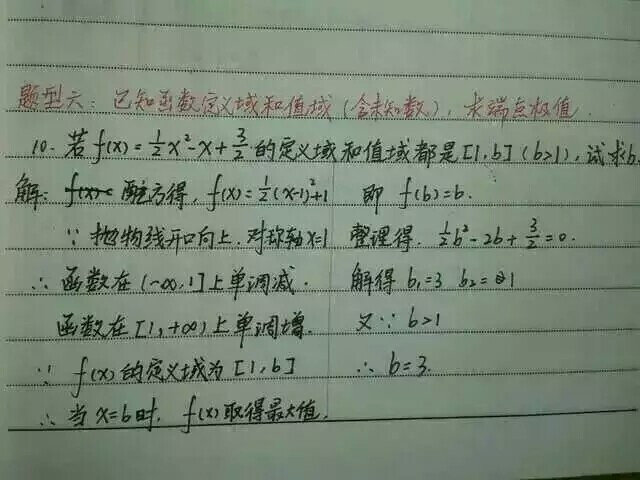 题型六：已知函数定义域和值域（含未知数），求端点极值.
10. 若f(x)=½x²-x+3/2的定义域和值域都是[1,b](b>1),试求b.
解: 配方得, f(x)=½(x-1)²+1
∵ 抛物线开口向上.对称轴x=1
∴ 函数在(-∞,1]上单调减.
函数在[1,+∞)上单调增.
∵ f(x)的定义域为[1,b]
∴ 当x=b时, f(x)取得最大值.
即 f(b)=b.
整理得. ½b²-2b+3/2=0.
解得 b₁=3 b₂=1
又∵ b>1
∴ b=3.